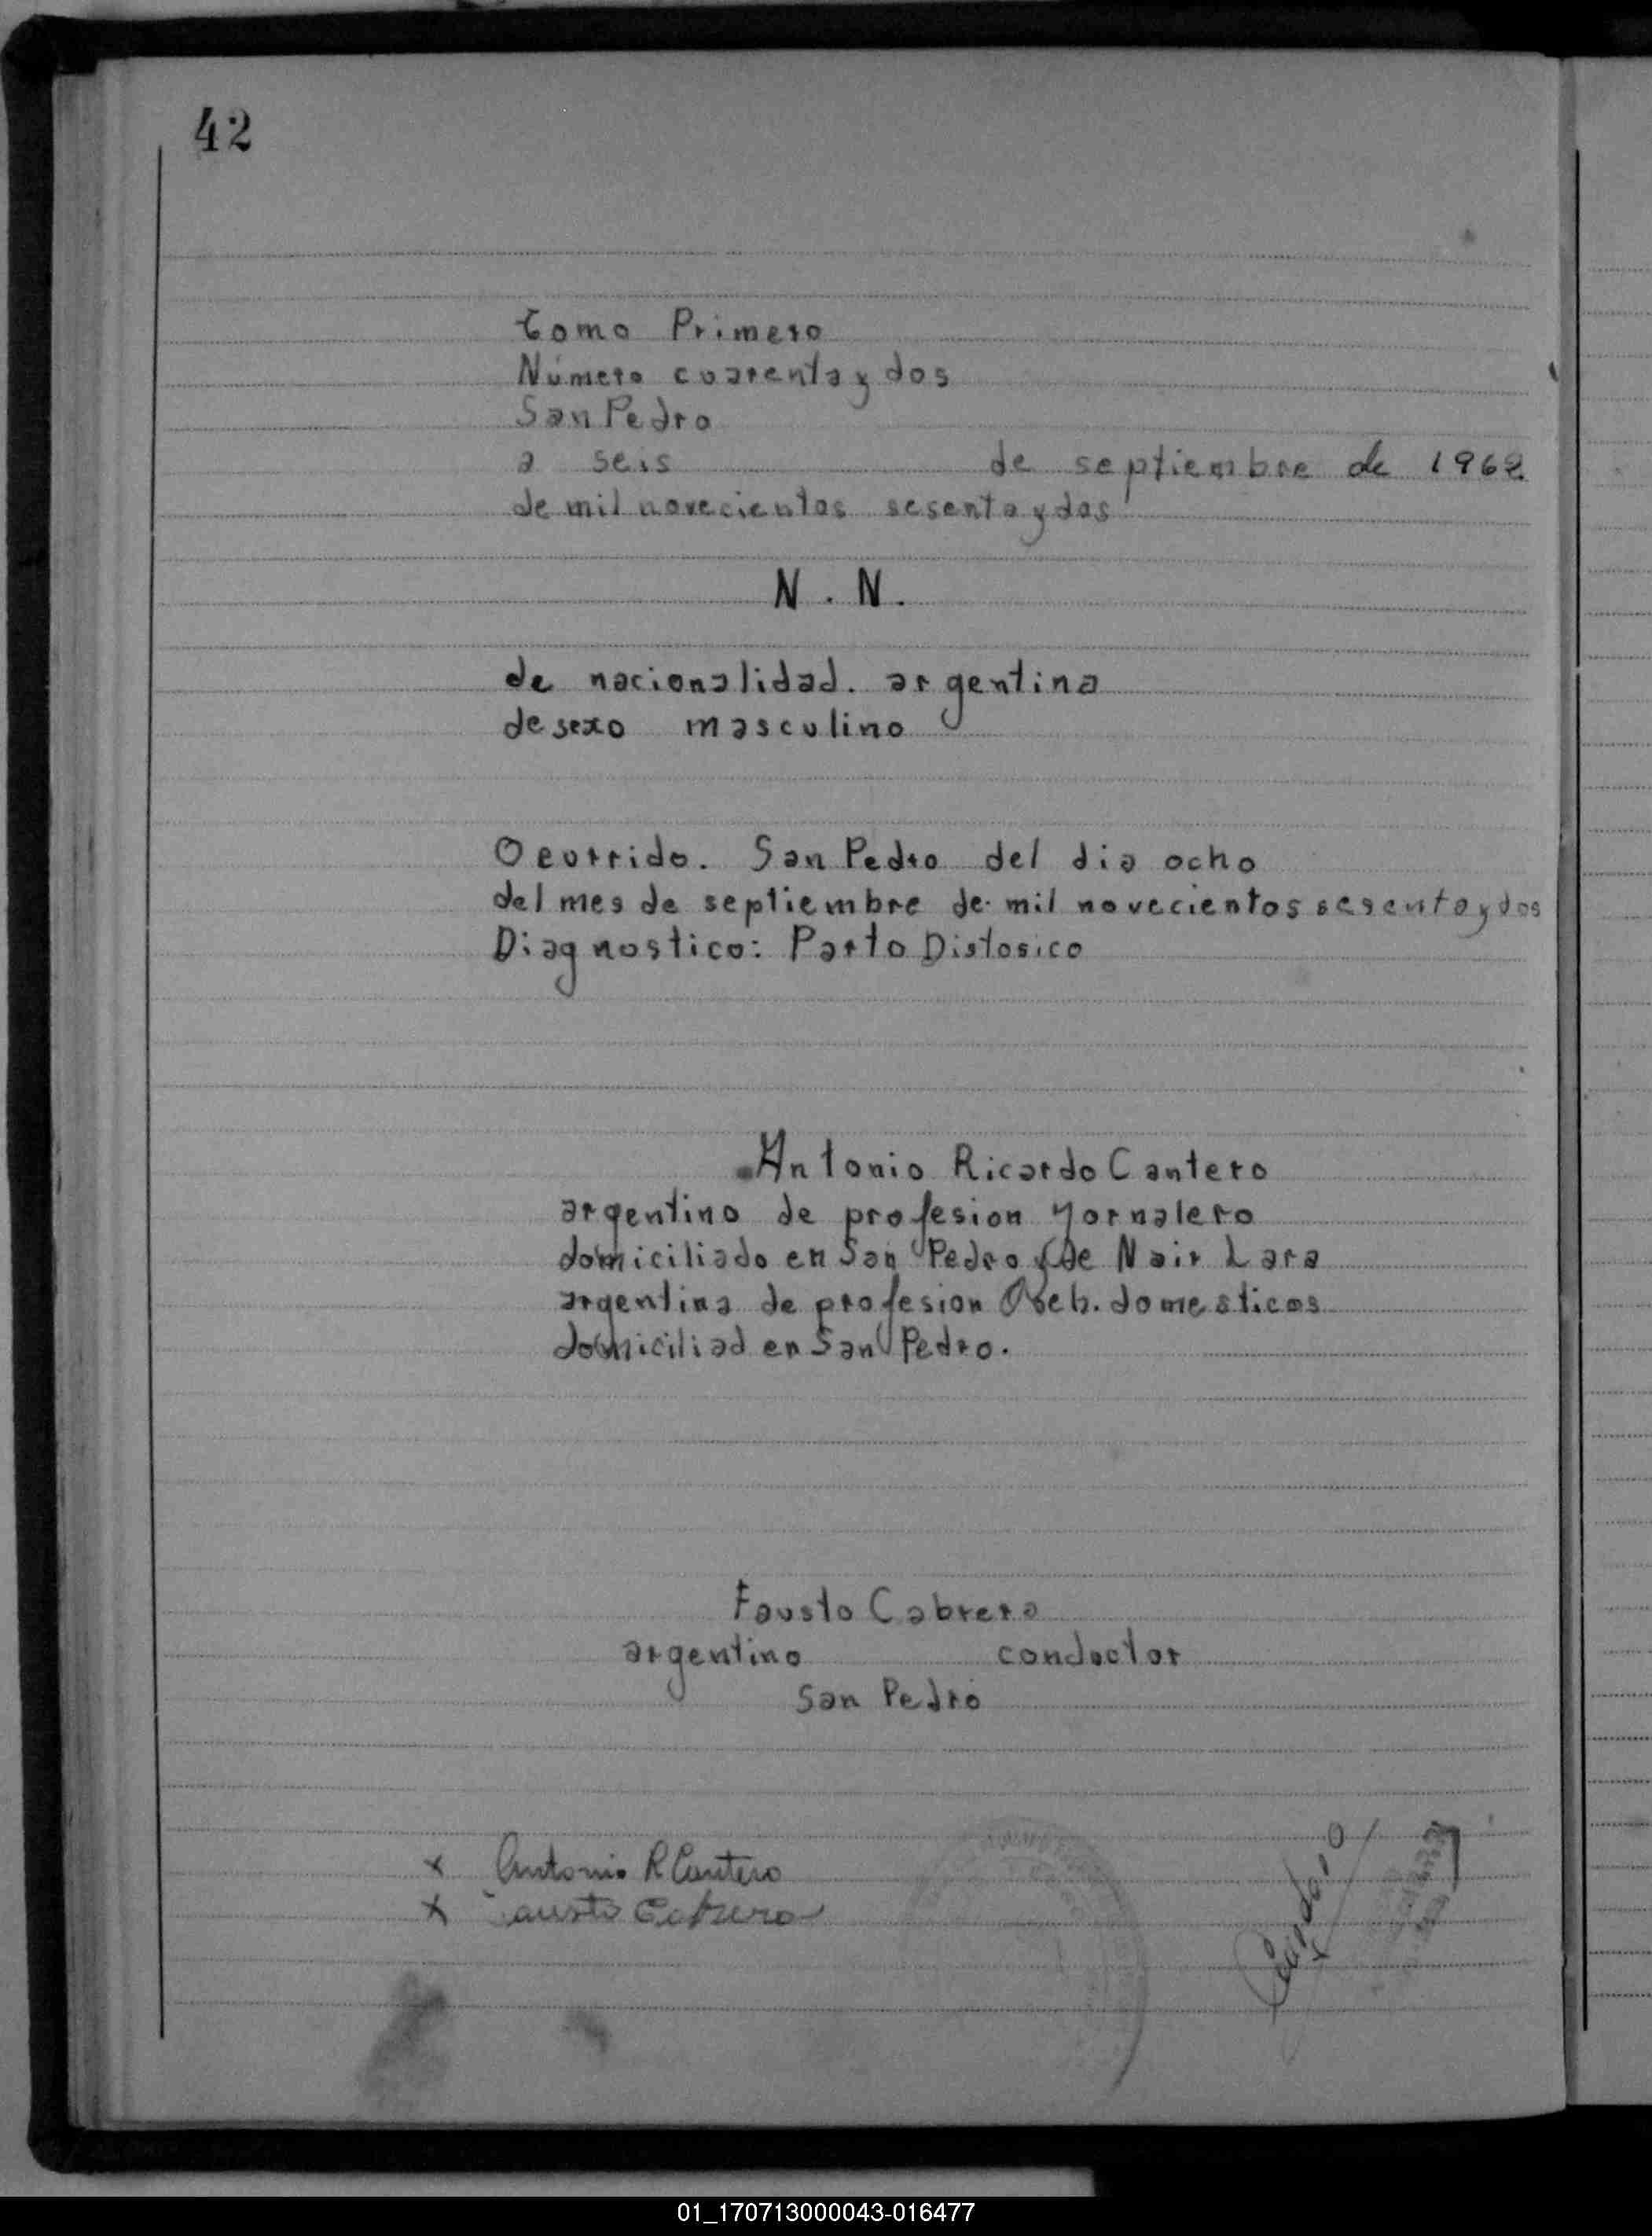 42
Tomo Primero
Número cuarenta y dos
San Pedro
a seis de septiembre de 1962
de mil novecientos sesenta y dos
N. N.
de nacionalidad. argentina
de sexo masculino
Ocurrido. San Pedro del dia ocho
del mes de septiembre de mil novecientos sesenta y dos
Diagnostico: Parto Distosico
Antonio Ricardo Cantero
argentino de profesion Yornalero
domiciliado en San Pedro y de Nair Lara
argentina de profesion domesticos
domiciliad en San Pedro.
Fausto Cabrera
argentino conductor
San Pedro
x Antonio R Cantero
x Fausto Cabrera
01_170713000043-016477